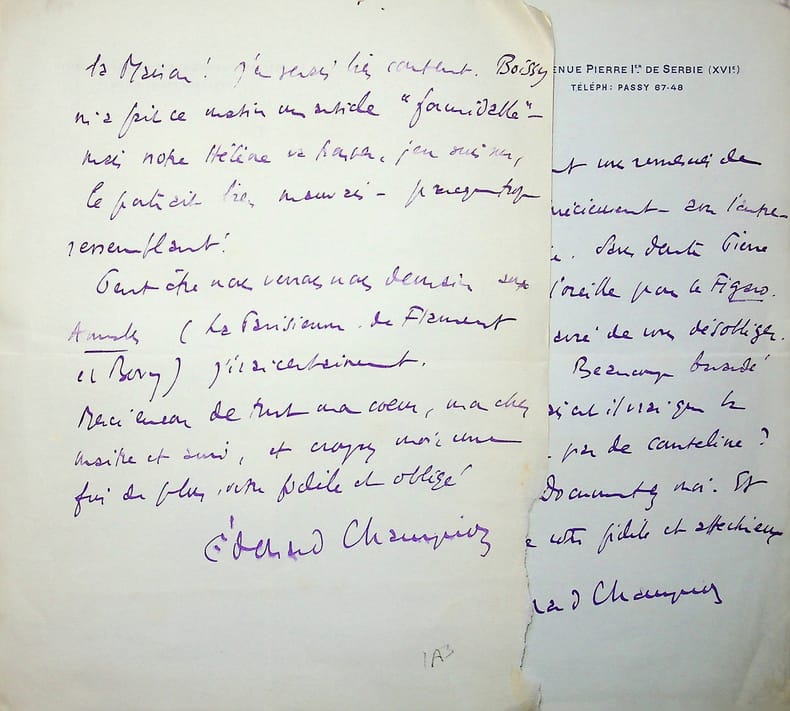 la Maison ! j'en serais très content. Boissy
m'a fait ce matin un article "formidable" –
mais notre Hélène va , j'en suis sûr,
le portrait très mauvais – presque trop
ressemblant !
Peut-être nous verrons nous demain aux
Annales (la Parisienne de Flament
et Bovy) j'irai certainement.
Merci encore de tout mon coeur, mon cher
maître et ami, et croyez moi une
fois de plus, votre fidèle et obligé
Édouard Champion
1A
ENUE PIERRE Iᴱᴿ DE SERBIE (XVIᵉ)
TÉLÉPH : PASSY 67-48
de
avec l'entre-
Sans doute Pierre
l'oreille par le Figaro.
de vous désobliger.
Beaucoup
il vrai que la
pas de cauteline ?
Documentez moi. Et
votre fidèle et affectueux
ard Champion